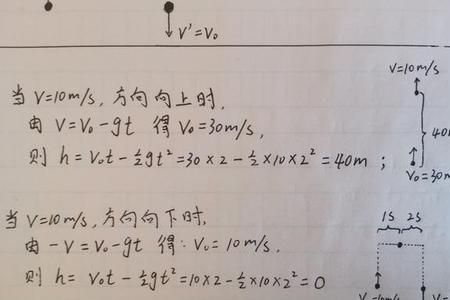 V'=V₀
V=10m/s
当 V=10m/s, 方向向上时,
由 V=V₀-gt 得 V₀=30m/s,
则 h=V₀t-½gt²=30×2-½×10×2²=40m ;
40m
V₀=30m
当 V=10m/s, 方向向下时,
由 -V=V₀-gt 得: V₀=10m/s.
则 h= V₀t-½gt²=10×2-½×10×2²=0
1S 2S